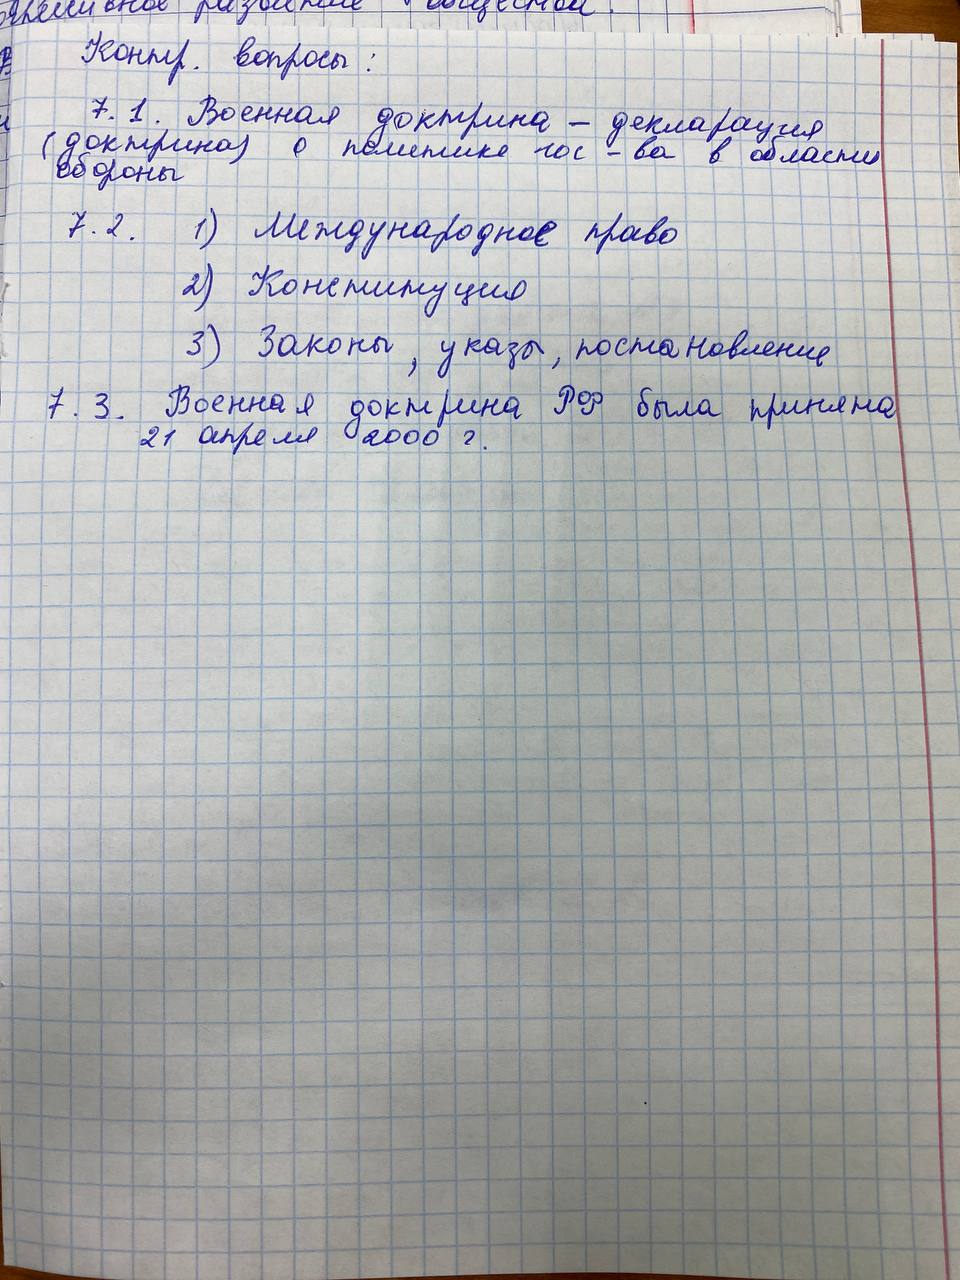 развитие общества.
Контр. вопросы:
7.1. Военная доктрина – декларация
(доктрина) о политике гос-ва в области
обороны
7.2. 1) Международное право
2) Конституция
3) Законы, указы, постановление
7.3. Военная доктрина РФ была принята
21 апреля 2000 г.